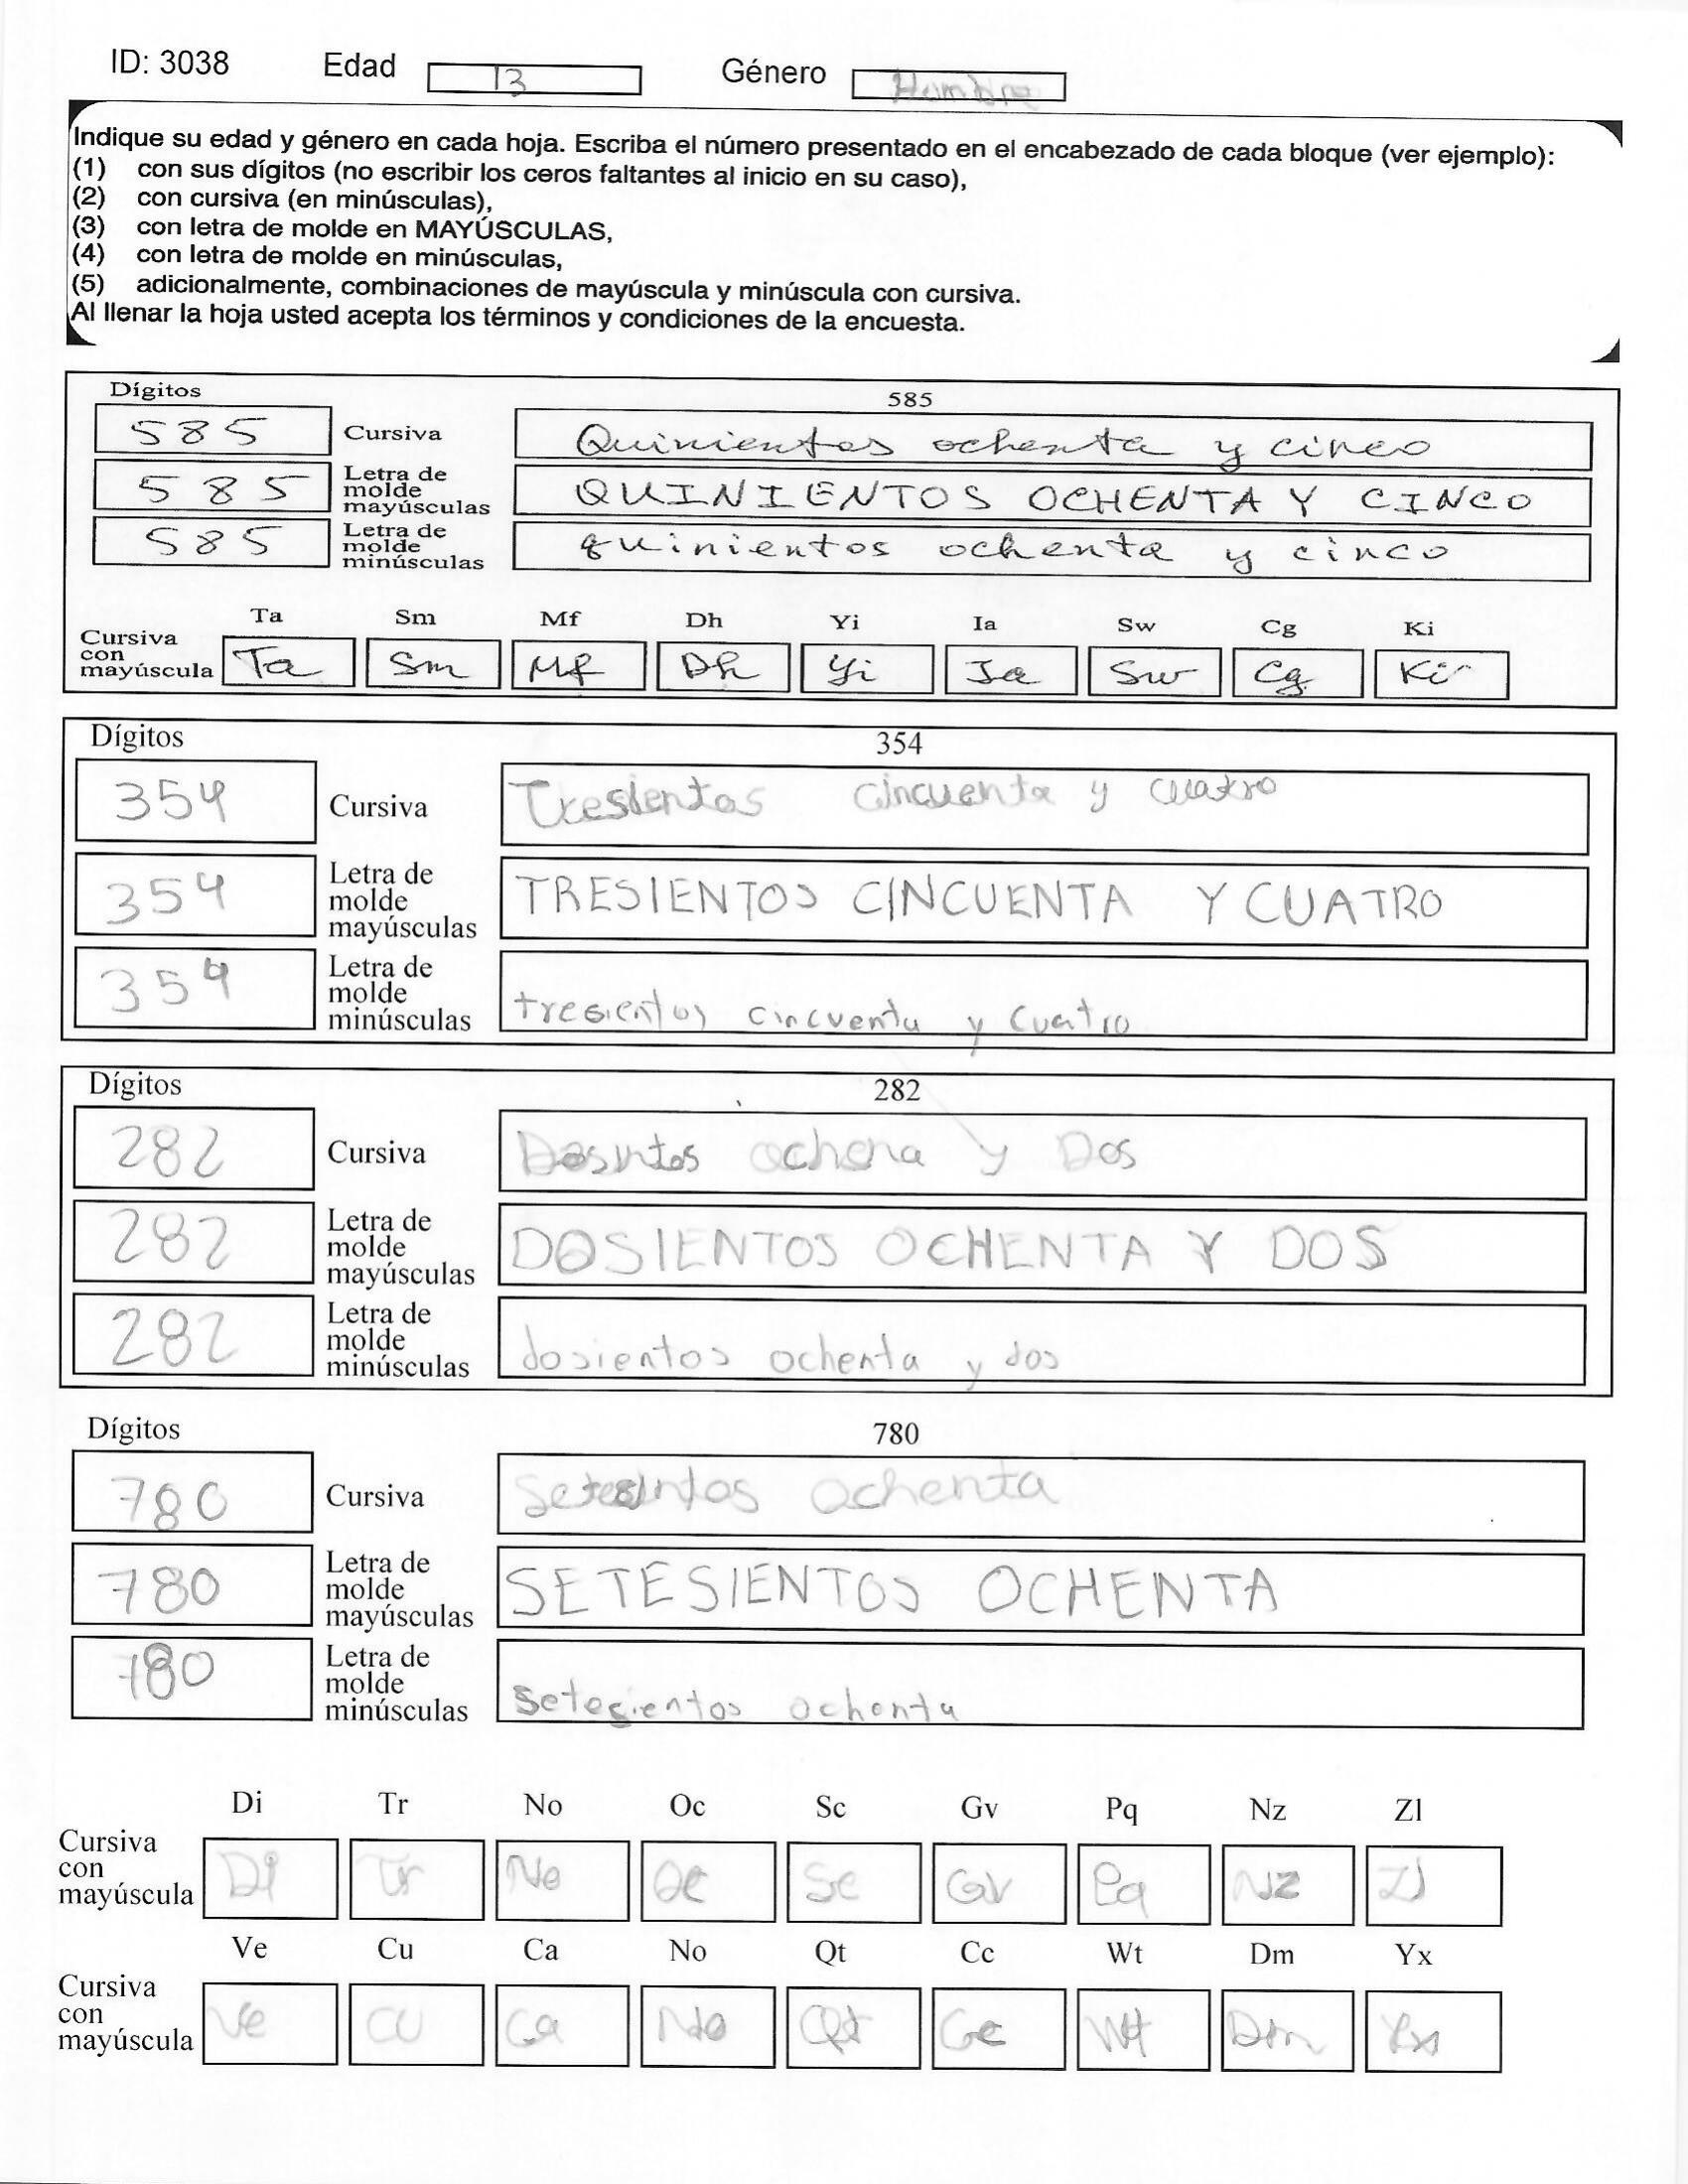 ID: 3038 Edad 13 Género Hombre
Indique su edad y género en cada hoja. Escriba el número presentado en el encabezado de cada bloque (ver ejemplo):
(1) con sus dígitos (no escribir los ceros faltantes al inicio en su caso),
(2) con cursiva (en minúsculas),
(3) con letra de molde en MAYÚSCULAS,
(4) con letra de molde en minúsculas,
(5) adicionalmente, combinaciones de mayúscula y minúscula con cursiva.
Al llenar la hoja usted acepta los términos y condiciones de la encuesta.
Dígitos 585
585 Cursiva Quinientos ochenta y cinco
585 Letra de molde mayúsculas QUINIENTOS OCHENTA Y CINCO
585 Letra de molde minúsculas quinientos ochenta y cinco
Ta Sm Mf Dh Yi Ia Sw Cg Ki
Cursiva con mayúscula Ta Sm Mf Dh Yi Ia Sw Cg Ki
Dígitos 354
354 Cursiva Tresientos cincuenta y cuatro
354 Letra de molde mayúsculas TRESIENTOS CINCUENTA Y CUATRO
354 Letra de molde minúsculas tresientos cincuenta y cuatro
Dígitos 282
282 Cursiva Dosintos ochena y Dos
282 Letra de molde mayúsculas DOSIENTOS OCHENTA Y DOS
282 Letra de molde minúsculas dosientos ochenta y dos
Dígitos 780
780 Cursiva Setesintos ochenta
780 Letra de molde mayúsculas SETESIENTOS OCHENTA
780 Letra de molde minúsculas setesientos ochenta
Di Tr No Oc Sc Gv Pq Nz Zl
Cursiva con mayúscula Di Tr No Oc Sc Gv Pq Nz Zl
Ve Cu Ca No Qt Cc Wt Dm Yx
Cursiva con mayúscula Ve Cu Ca No Qt Cc Wt Dm Yx